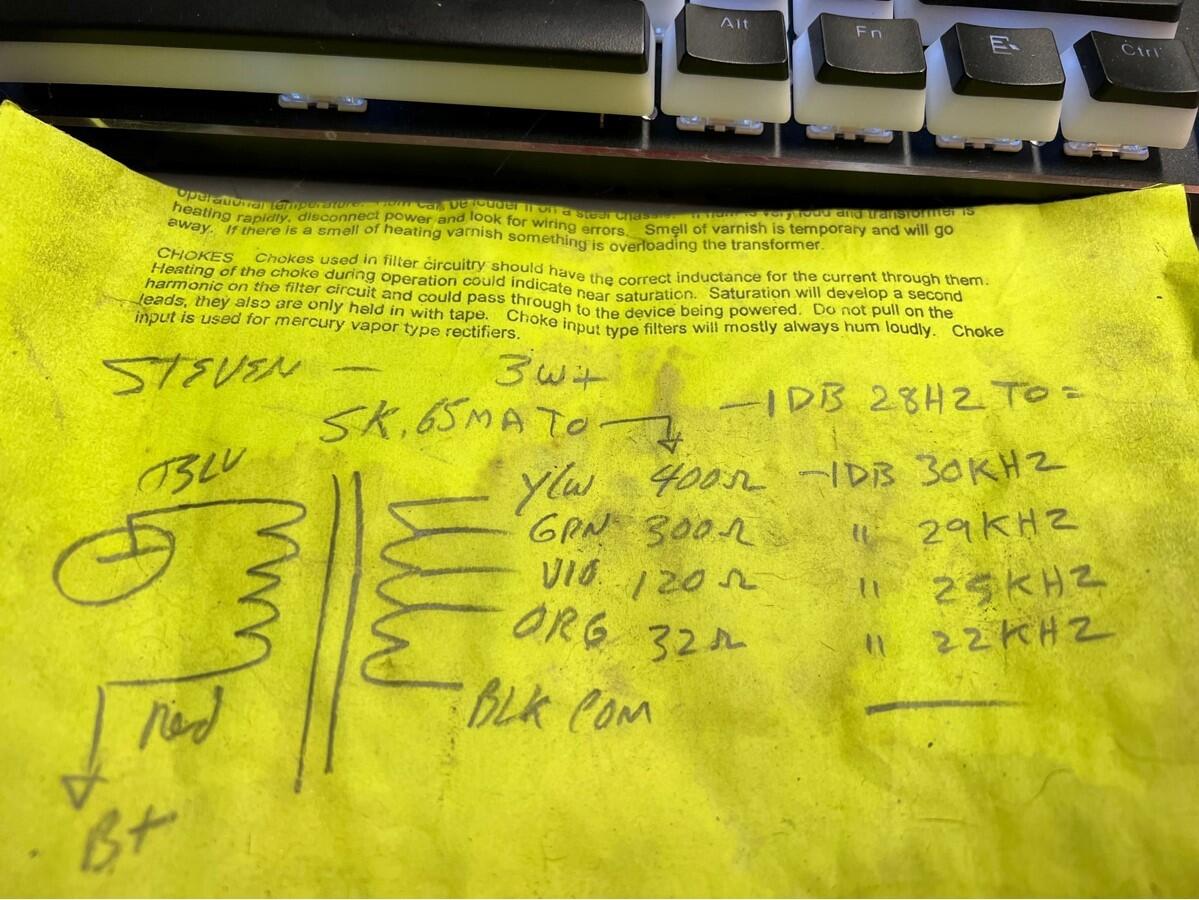 Alt Fn E Ctrl
operational temperature. Hum can be louder if on a steel chassis. If hum is very loud and transformer is
heating rapidly, disconnect power and look for wiring errors. Smell of varnish is temporary and will go
away. If there is a smell of heating varnish something is overloading the transformer.
CHOKES Chokes used in filter circuitry should have the correct inductance for the current through them.
Heating of the choke during operation could indicate near saturation. Saturation will develop a second
harmonic on the filter circuit and could pass through to the device being powered. Do not pull on the
leads, they also are only held in with tape. Choke input type filters will mostly always hum loudly. Choke
input is used for mercury vapor type rectifiers.
STEVEN — 3W+
5K, 65MA TO -1DB 28HZ TO =
BLU
YLW 400Ω -1DB 30KHZ
GRN 300Ω " 29KHZ
VIO. 120Ω " 25KHZ
ORG 32Ω " 22KHZ
BLK COM
Red
B+